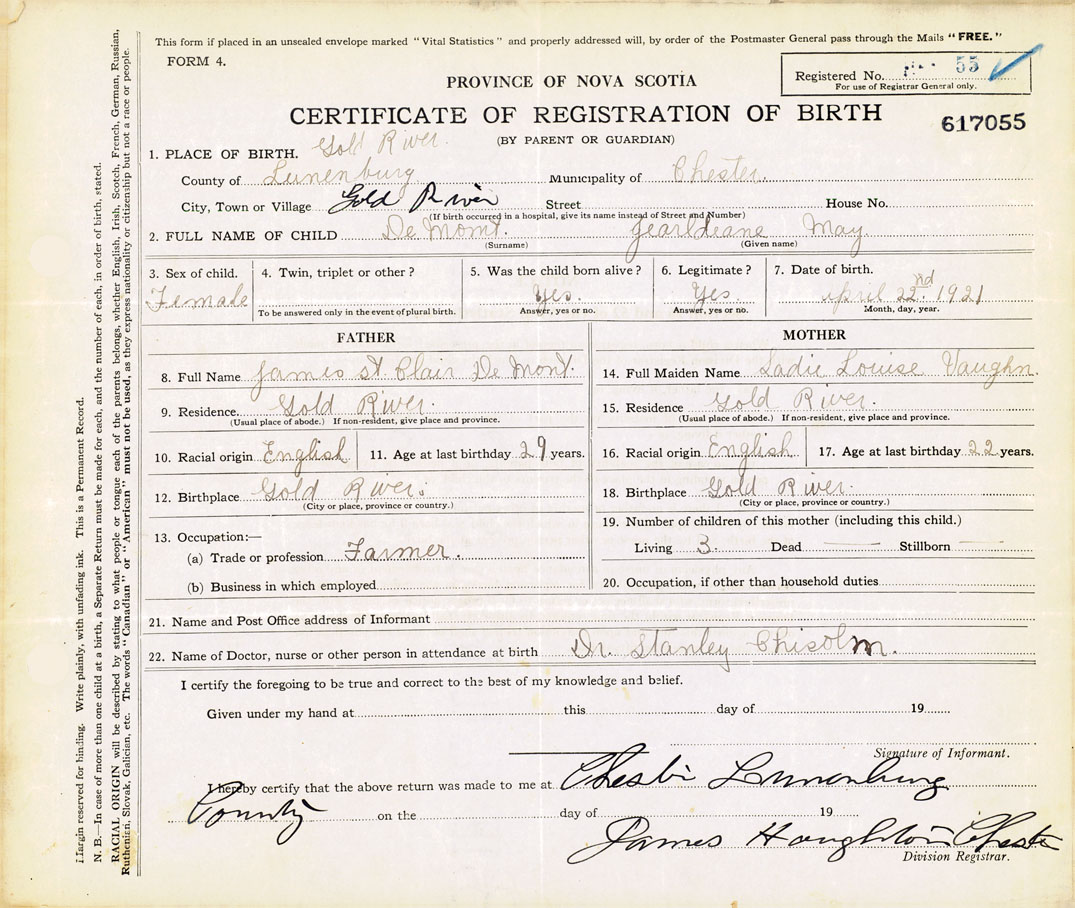 This form if placed in an unsealed envelope marked "Vital Statistics" and properly addressed will, by order of the Postmaster General pass through the Mails "FREE."
FORM 4.
Registered No. 55
For use of Registrar General only.
PROVINCE OF NOVA SCOTIA
CERTIFICATE OF REGISTRATION OF BIRTH
617055
(BY PARENT OR GUARDIAN)
1. PLACE OF BIRTH. Gold River.
County of Lunenburg Municipality of Chester.
City, Town or Village Gold River Street House No.
(If birth occurred in a hospital, give its name instead of Street and Number)
2. FULL NAME OF CHILD De Mont. Jearldeane May
(Surname) (Given name)
3. Sex of child. 4. Twin, triplet or other? 5. Was the child born alive? 6. Legitimate? 7. Date of birth.
Female Yes. Yes. april 22nd. 1921
To be answered only in the event of plural birth. Answer, yes or no. Answer, yes or no. Month, day, year.
FATHER
8. Full Name James St. Clair De Mont.
9. Residence. Gold River.
(Usual place of abode.) If non-resident, give place and province.
10. Racial origin English 11. Age at last birthday 29 years.
12. Birthplace Gold River.
(City or place, province or country.)
13. Occupation:—
(a) Trade or profession Farmer.
(b) Business in which employed
MOTHER
14. Full Maiden Name Sadie Louise Vaughn.
15. Residence Gold River.
(Usual place of abode.) If non-resident, give place and province.
16. Racial origin English 17. Age at last birthday 22 years.
18. Birthplace Gold River.
(City or place, province or country.)
19. Number of children of this mother (including this child.)
Living 3. Dead — Stillborn —
20. Occupation, if other than household duties
21. Name and Post Office address of Informant
22. Name of Doctor, nurse or other person in attendance at birth Dr. Stanley Chisolm.
I certify the foregoing to be true and correct to the best of my knowledge and belief.
Given under my hand at this day of 19
Signature of Informant.
I hereby certify that the above return was made to me at Chester Lunenburg
County on the day of 19
James Houghton Chester
Division Registrar.
Margin reserved for binding. Write plainly, with unfading ink. This is a Permanent Record.
N. B.—In case of more than one child at a birth, a Separate Return must be made for each, and the number of each, in order of birth, stated.
RACIAL ORIGIN will be described by stating to what people or tongue each of the parents belongs, whether English, Irish, Scotch, French, German, Russian,
Ruthenian, Slovak, Galician, etc. The words "Canadian" or "American" must not be used, as they express nationality or citizenship but not a race or people.